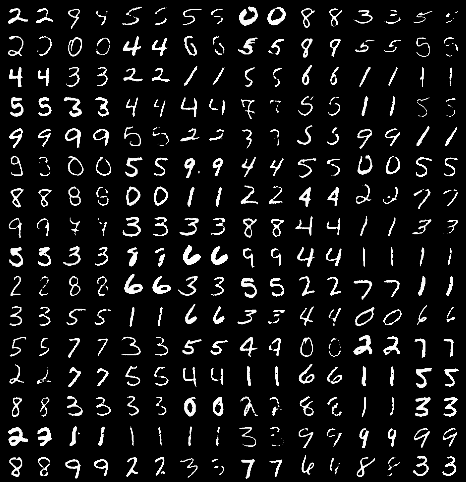 2 2 9 9 5 5 5 5 0 0 8 8 3 3 5 5
2 0 0 4 4 6 6 5 5 8 9 5 5 5 5
4 4 3 3 2 2 1 1 5 5 6 6 1 1 1 1
5 5 3 3 4 4 4 4 7 7 5 5 1 1 5 5
9 9 9 9 5 5 2 2 3 3 5 5 9 9 1 1
9 3 0 0 5 5 9 9 4 4 5 5 0 0 5 5
8 8 8 8 0 0 1 1 2 2 4 4 2 2 7 7
9 9 7 7 3 3 3 3 8 8 4 4 1 1 3 3
5 5 3 3 9 9 6 6 9 9 4 4 1 1 1 1
2 2 8 8 6 6 3 3 5 5 2 2 7 7 1 1
3 3 5 5 1 1 6 6 3 3 4 4 0 0 6 6
5 5 7 7 3 3 5 5 4 4 0 0 2 2 7 7
2 2 7 7 5 5 4 4 1 1 6 6 1 1 5 5
8 8 3 3 3 3 0 0 2 2 8 8 1 1 3 3
2 2 1 1 1 1 1 1 3 3 9 9 9 9 9 9
8 8 9 9 2 2 3 3 7 7 6 6 8 8 3 3